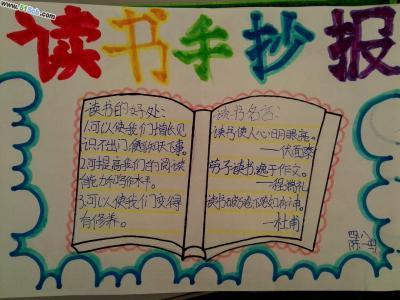 读书手抄报
读书的好处:
1.可以使我们增长见
识不出门便知天下事。
2.可提高我们的阅读
能力和写作水平。
3.可以使我们变得
有修养。
读书名言:
读书使人心明眼亮。
——伏面泰
劳于读书,逸于作文。
——程端礼
读书破万卷,下笔如有神。
——杜甫
四、八